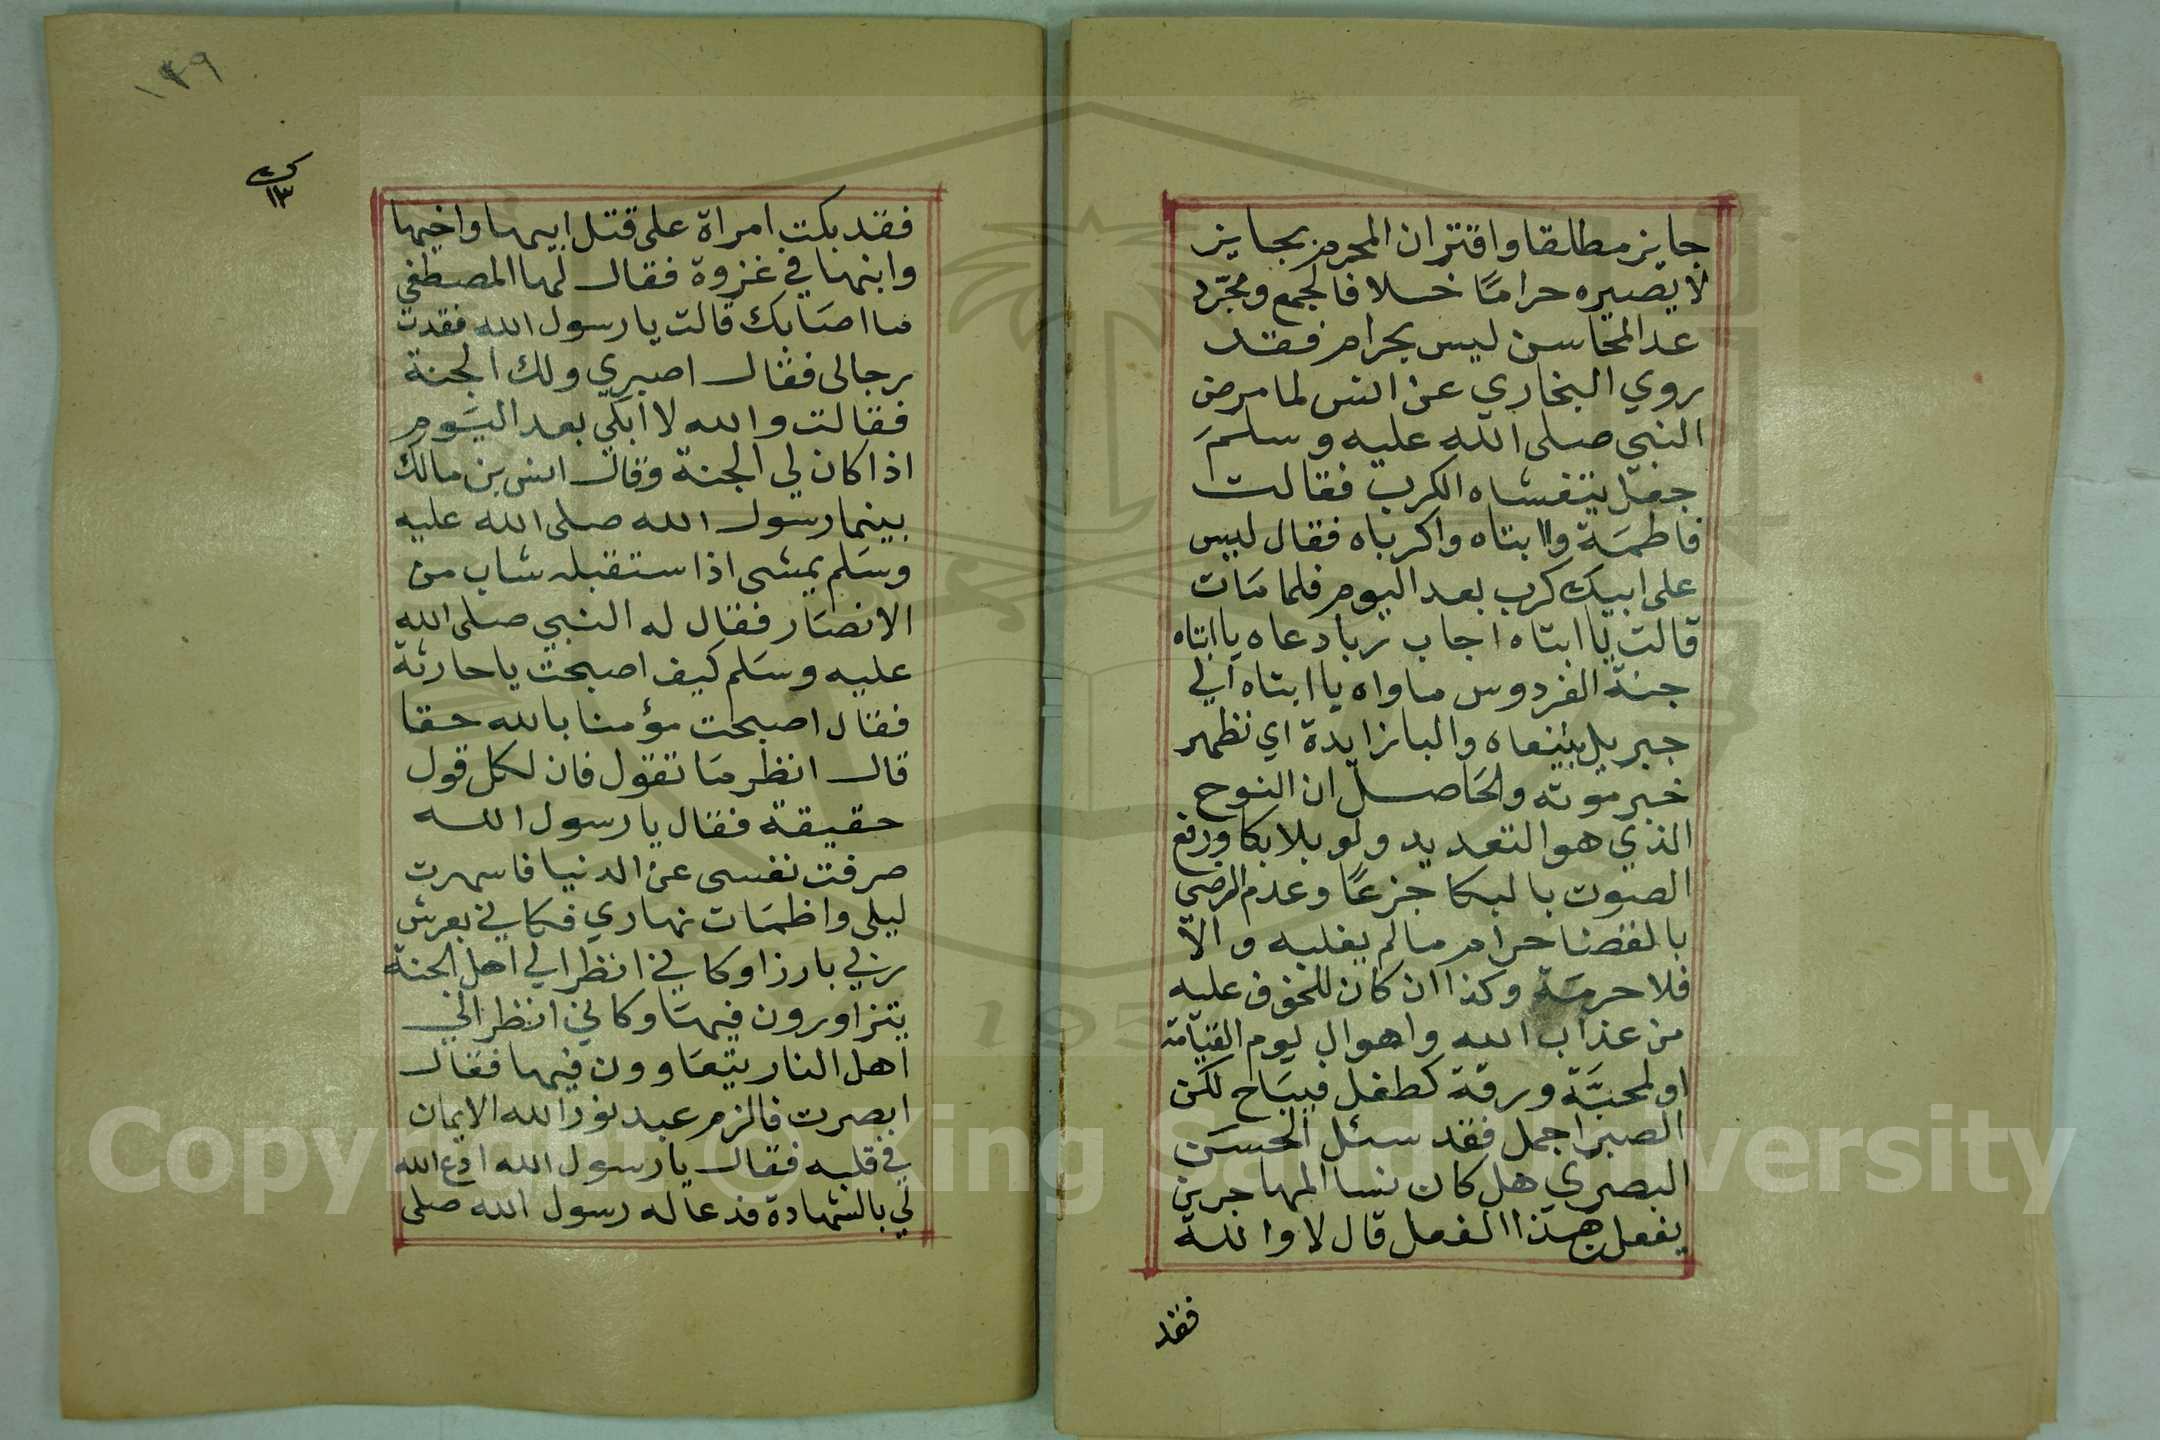 جايز مطلقا واقتران المحرم بجايز
لا يصيره حراما خلا فالجمع ومجرد
عد المحاسن ليس بحرام فقد
روي البخاري عن انس لما مرض
النبي صلى الله عليه وسلم
جعل يتغشاه الكرب فقالت
فاطمة وا ابتاه واكرباه فقال ليس
على ابيك كرب بعد اليوم فلما مات
قالت يا ابتاه اجاب ربا دعاه يا ابتاه
جنة الفردوس ماواه يا ابتاه الي
جبريل بننعاه والبا زايدة اي نظهر
خبر موته والحاصل ان النوح
الذي هو التعديد ولو بلا بكا ورفع
الصوت بالبكا جزعا وعدم الرضي
بالقضا حرام مالم يغلبه والا
فلا حرمة وكذا ان كان للخوف عليه
من عذاب الله واهوال يوم القيامة
او لمحبة ورقة كطفل فيباح لكن
الصبر اجمل فقد سئل الحسن
البصري هل كان نسا المهاجرين
يفعلن هذا الفعل قال لا والله
فقد
١٣٩
١٣
فقد بكت امراة على قتل ابيها واخيها
وابنها في غزوة فقال لها المصطفي
ما اصابك قالت يا رسول الله فقدت
رجالي فقال اصبري ولك الجنة
فقالت والله لا ابكي بعد اليوم
اذا كان لي الجنة وقال انس بن مالك
بينما رسول الله صلى الله عليه
وسلم يمشي اذا ستقبله شاب من
الانصار فقال له النبي صلى الله
عليه وسلم كيف اصبحت يا حارثة
فقال اصبحت مؤمنا بالله حقا
قال انظر ما تقول فان لكل قول
حقيقة فقال يا رسول الله
صرفت نفسي عن الدنيا فاسهرت
ليلي واظمات نهاري فكاني بعرش
ربي بارزا وكاني انظر الي اهل الجنة
يتزاورون فيها وكاني انظر الي
اهل النار يتعاوون فيها فقال
ابصرت فالزم عبد نور الله الايمان
في قلبه فقال يا رسول الله ادع الله
لي بالشهادة فدعا له رسول الله صلى
Copyright © King Saud University
195